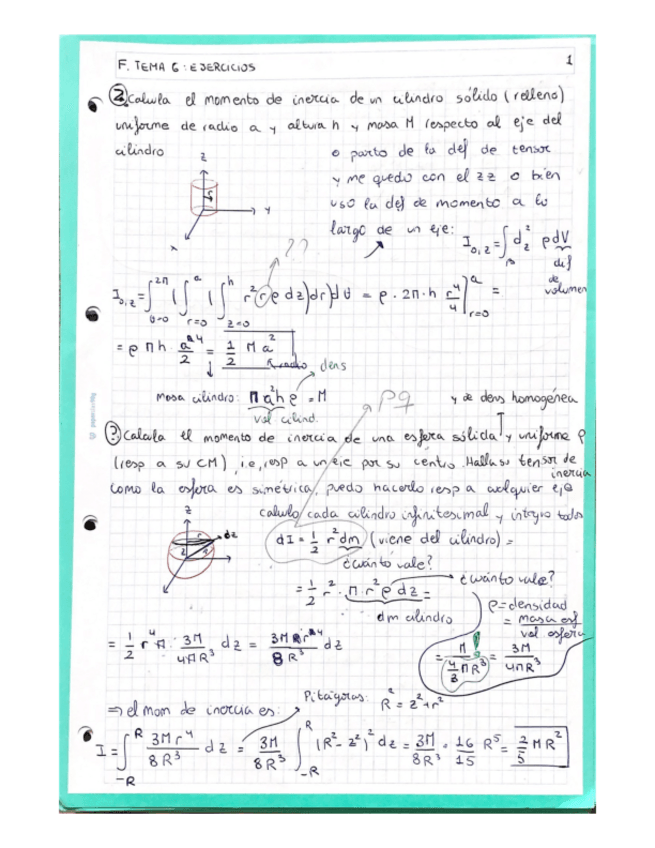 F. TEMA 6: EJERCICIOS 1
2. Calcula el momento de inercia de un cilindro sólido (relleno)
uniforme de radio a y altura h y masa M respecto al eje del
cilindro
o parto de la def de tensor
y me quedo con el zz o bien
uso la def de momento a lo
largo de un eje: I₀,z = ∫ d²z ρdV
def de volumen
z
y
x
??
I₀,z = ∫_{θ=0}^{2π} (∫_{r=0}^{a} (∫_{z=0}^{h} r² r ρ dz) dr) dθ = ρ · 2π · h r⁴/4 ]_{r=0}^{a} =
= ρ π h · a⁴/2 = 1/2 M a²
radio
dens
masa cilindro: π a² h ρ = M
vol cilind.
Pq
y de dens homogénea
? Calcula el momento de inercia de una esfera sólida y uniforme ρ
(resp a su CM), i.e, resp a un eje por su centro. Halla su tensor de
inercia
como la esfera es simétrica, puedo hacerlo resp a cualquier eje
calculo cada cilindro infinitesimal y integro todos
z
r
dz
dI = 1/2 r² dm (viene del cilindro) =
¿cuánto vale?
= 1/2 r² · π · r² ρ dz =
¿cuánto vale?
dm cilindro
ρ = densidad
= masa esf / vol esfera
= M / (4/3 π R³) = 3M / 4πR³
= 1/2 r⁴ π · 3M / 4πR³ dz = 3M r⁴ / 8 R³ dz
⇒ el mom de inercia es:
Pitágoras: R² = z² + r²
I = ∫_{-R}^{R} 3M r⁴ / 8R³ dz = 3M / 8R³ ∫_{-R}^{R} (R² - z²)² dz = 3M / 8R³ · 16/15 R⁵ = 2/5 MR²